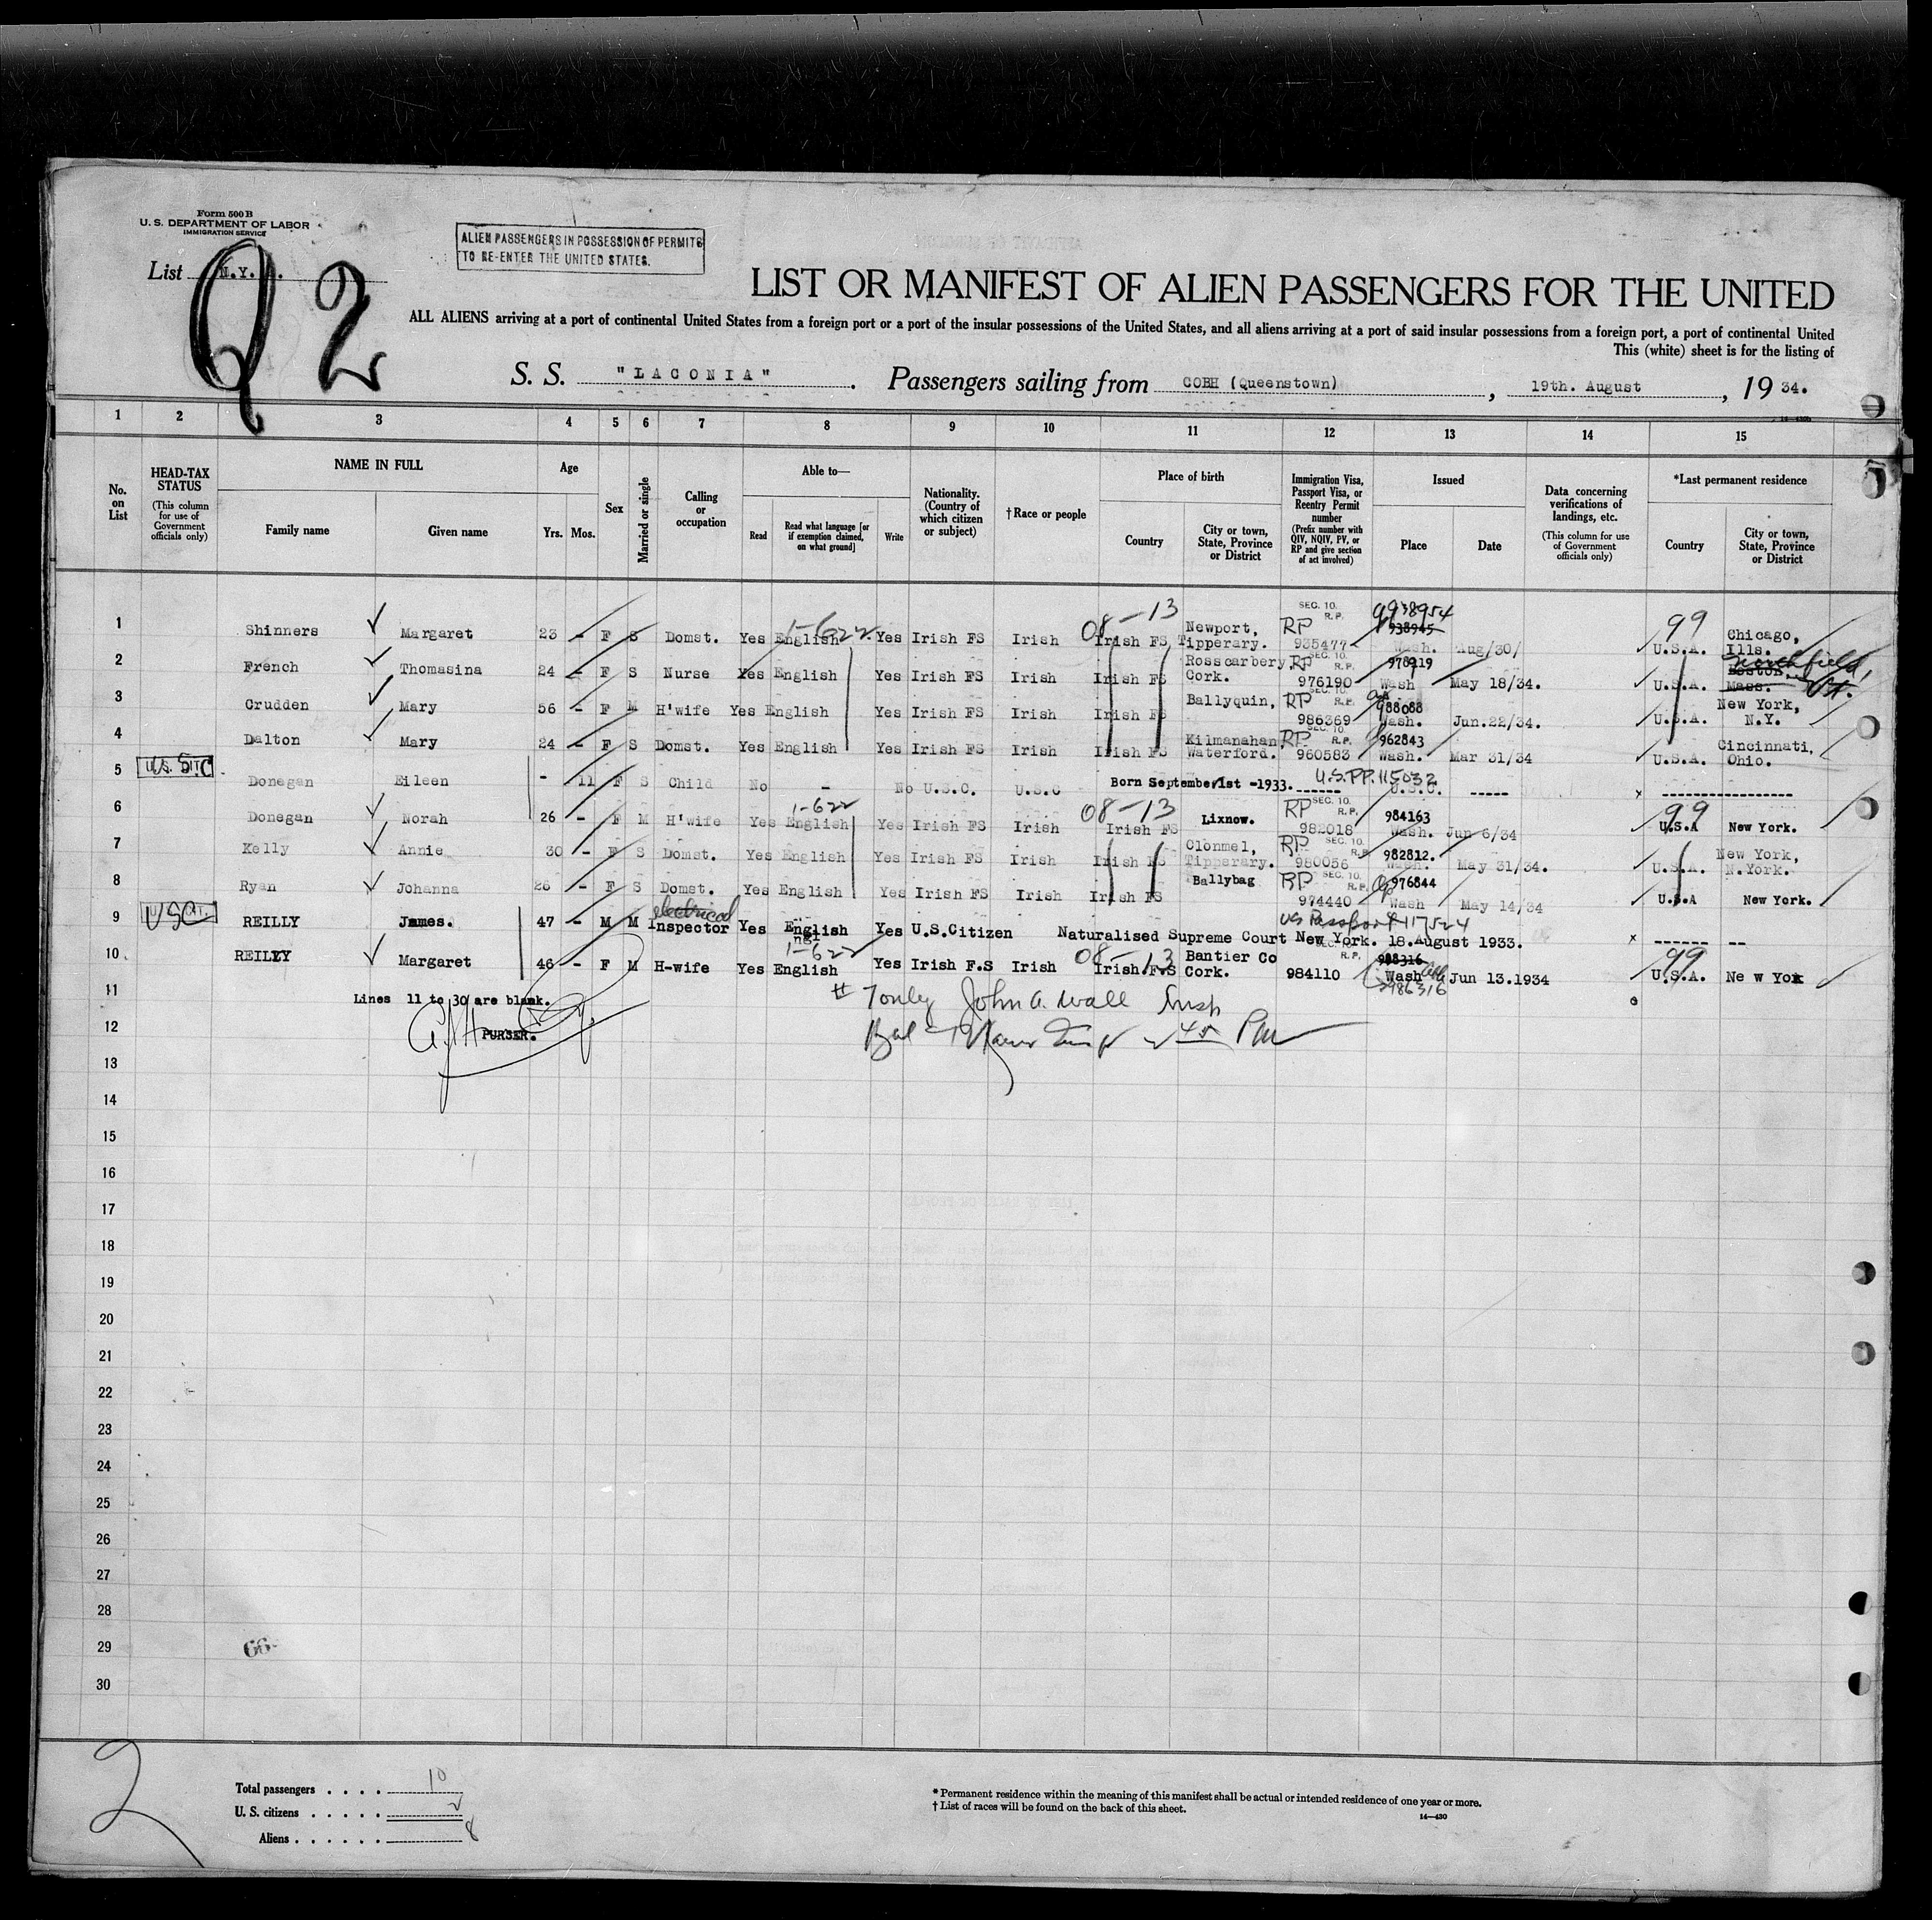 Form 500 B
U. S. DEPARTMENT OF LABOR
IMMIGRATION SERVICE
List N.Y.
Q 2
ALIEN PASSENGERS IN POSSESSION OF PERMITS
TO RE-ENTER THE UNITED STATES.
LIST OR MANIFEST OF ALIEN PASSENGERS FOR THE UNITED
ALL ALIENS arriving at a port of continental United States from a foreign port or a port of the insular possessions of the United States, and all aliens arriving at a port of said insular possessions from a foreign port, a port of continental United
This (white) sheet is for the listing of
S. S. "LACONIA". Passengers sailing from COBH (Queenstown), 19th. August, 19 34.
1 2 3 4 5 6 7 8 9 10 11 12 13 14 15
No. on List
HEAD-TAX STATUS (This column for use of Government officials only)
NAME IN FULL
Family name
Given name
Age
Yrs. Mos.
Sex
Married or single
Calling or occupation
Able to—
Read
Read what language [or if exemption claimed, on what ground]
Write
Nationality. (Country of which citizen or subject)
†Race or people
Place of birth
Country
City or town, State, Province or District
Immigration Visa, Passport Visa, or Reentry Permit number (Prefix number with QIV, NQIV, PV, or RP and give section of act involved)
Issued
Place
Date
Data concerning verifications of landings, etc. (This column for use of Government officials only)
*Last permanent residence
Country
City or town, State, Province or District
1 Shinners Margaret 23 - F S Domst. Yes English 1-622 Yes Irish FS Irish 08-13 Irish FS Newport, Tipperary. SEC. 10. R.P. RP 935477 938945 9938954 Wash. Aug/30/ 99 U.S.A. Chicago, Ills.
2 French Thomasina 24 - F S Nurse Yes English Yes Irish FS Irish Irish FS Rosscarbery, Cork. RP SEC. 10. R.P. 976190 978919 Wash May 18/34. U.S.A. Boston, Mass. Northfield, Vt.
3 Crudden Mary 56 - F M H'wife Yes English Yes Irish FS Irish Irish FS Ballyquin, RP SEC. 10. R.P. 986369 988088 Wash. Jun.22/34. U.S.A. New York, N.Y.
4 Dalton Mary 24 - F S Domst. Yes English Yes Irish FS Irish Irish FS Kilmanahan, Waterford. RP SEC. 10. R.P. 960583 962843 Wash. Mar 31/34 U.S.A. Cincinnati, Ohio.
5 U.S. CIT Donegan Eileen - 11 F S Child No - No U.S.C. U.S.C Born September 1st -1933. ------ U.S.PP. 115032 U.S.C. ----- x -----------------
6 Donegan Norah 26 - F M H'wife Yes English 1-622 Yes Irish FS Irish 08-13 Irish FS Lixnow. RP SEC. 10. R.P. 982018 984163 Wash. Jun 6/34 99 U.S.A New York.
7 Kelly Annie 30 - F S Domst. Yes English Yes Irish FS Irish Irish FS Clonmel, Tipperary. RP SEC. 10. R.P. 980056 982812. Wash. May 31/34. U.S.A. New York, N.York.
8 Ryan Johanna 26 - F S Domst. Yes English Yes Irish FS Irish Irish FS Ballybag RP SEC. 10. R.P. 974440 976844 Wash May 14/34 U.S.A New York.
9 USC REILLY James. 47 - M M electrical Inspector Yes English Yes U.S.Citizen Naturalised Supreme Court New York. 18.August 1933. US Passport 117524 x ------ --
10 REILLY Margaret 46 - F M H-wife Yes English 1-622 Yes Irish F.S Irish 08-13 Irish F.S Bantier Co Cork. R.P. 984110 988316 986316 Wash Jun 13.1934 99 U.S.A. Ne w Yok
11 Lines 11 to 30 are blank.
7 only John A. Wall Insp
12 PURSER.
13
14
15
16
17
18
19
20
21
22
23
24
25
26
27
28
29
66
30
2
Total passengers . . . . 10
U. S. citizens . . . . . 2
Aliens . . . . . . 8
* Permanent residence within the meaning of this manifest shall be actual or intended residence of one year or more.
† List of races will be found on the back of this sheet.
14—430